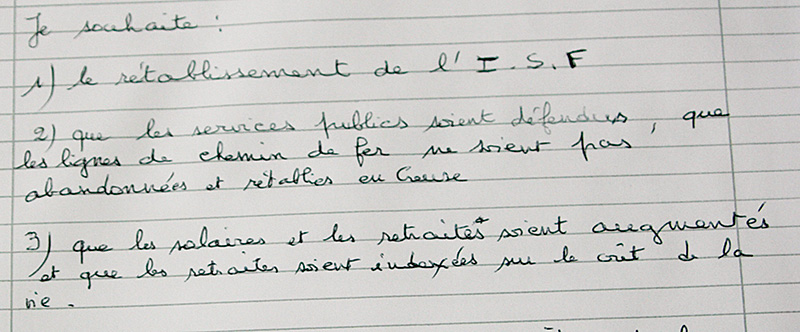 Je souhaite :
1) le rétablissement de l'I.S.F
2) que les services publics soient défendus, que
les lignes de chemin de fer ne soient pas
abandonnées et rétablies en Creuse
3) que les salaires et les retraites soient augmentés
et que les retraites soient indexées sur le coût de la
vie.